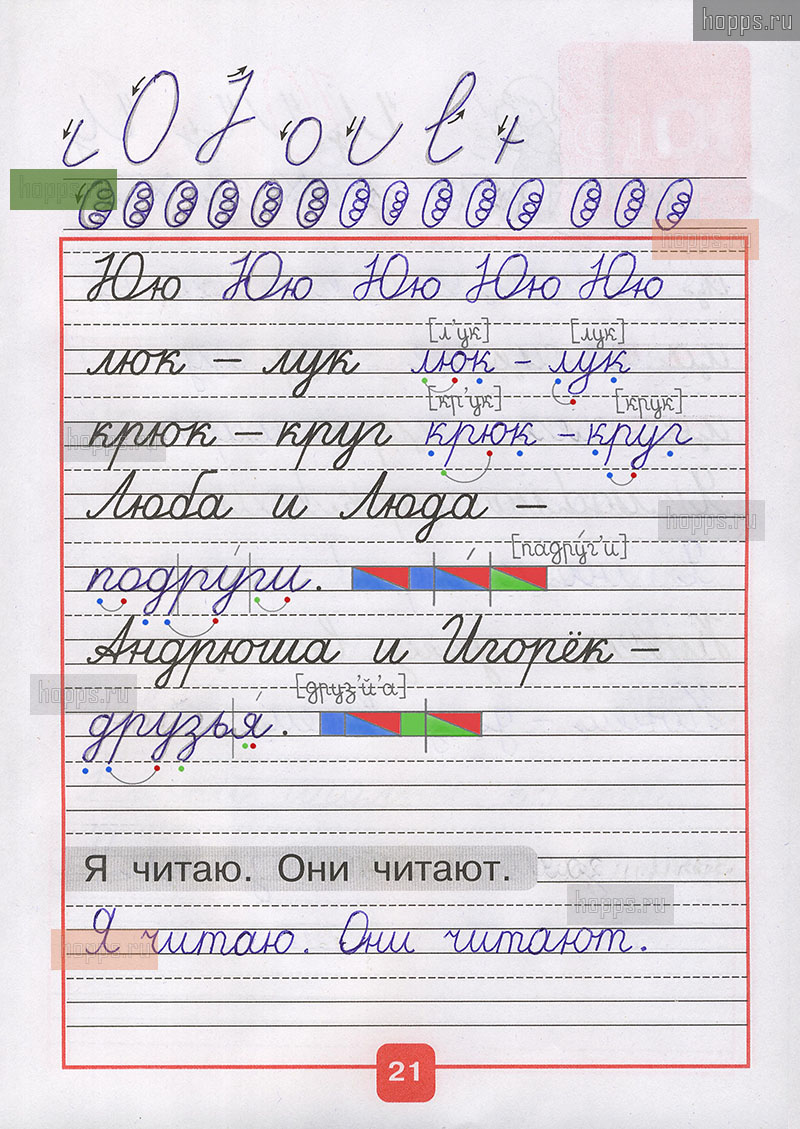 hopps.ru
hopps.ru
hopps.ru
Юю Юю Юю Юю Юю
[л'ук] [лук]
люк – лук люк – лук
[кр'ук] [крук]
крюк – круг крюк – круг
hopps.ru
Люба и Люда –
hopps.ru
[падру́г'и]
подру́ги.
Андрюша и Игорёк –
hopps.ru
[друз'й'а]
друзья́.
Я читаю. Они читают.
hopps.ru
Я читаю. Они читают.
hopps.ru
21